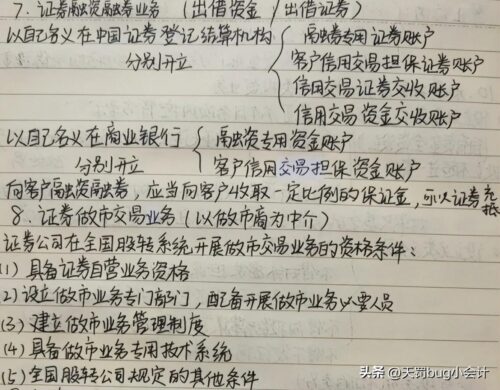 7. 证券融资融券业务（出借资金/出借证券）
以自己名义在中国证券登记结算机构 { 融券专用证券账户
分别开立 客户信用交易担保证券账户
信用交易证券交收账户
信用交易资金交收账户
以自己名义在商业银行 { 融资专用资金账户
分别开立 客户信用交易担保资金账户
向客户融资融券，应当向客户收取一定比例的保证金，可以证券充抵
8. 证券做市交易业务（以做市商为中介）
证券公司在全国股转系统开展做市交易业务的资格条件：
(1) 具备证券自营业务资格
(2) 设立做市业务专门部门，配备开展做市业务必要人员
(3) 建立做市业务管理制度
(4) 具备做市业务专用技术系统
(5) 全国股转公司规定的其他条件
头条 @天罚bug小会计